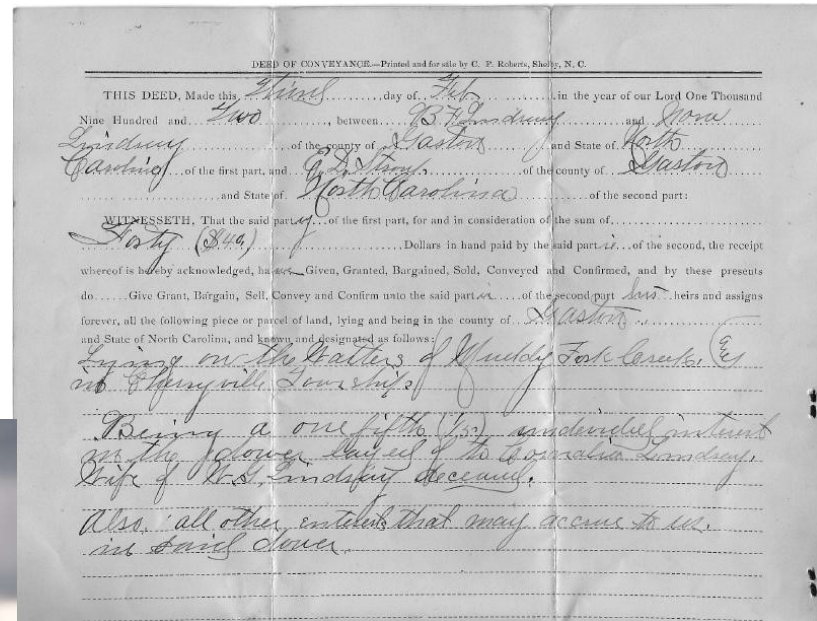 DEED OF CONVEYANCE.—Printed and for sale by C. P. Roberts, Shelby, N. C.
THIS DEED, Made this day of Feb in the year of our Lord One Thousand
Nine Hundred and Two, between B F Lindsay and Nora
Lindsay of the county of Gaston and State of North
Carolina of the first part, and E. D. of the county of Gaston
and State of North Carolina of the second part:
WITNESSETH, That the said party of the first part, for and in consideration of the sum of
Forty ($40) Dollars in hand paid by the said part of the second, the receipt
whereof is hereby acknowledged, have Given, Granted, Bargained, Sold, Conveyed and Confirmed, and by these presents
do Give Grant, Bargain, Sell, Convey and Confirm unto the said part of the second part his heirs and assigns
forever, all the following piece or parcel of land, lying and being in the county of Gaston
and State of North Carolina, and known and designated as follows:
Lying on the Watters of Muddy Fork Creek.
in Cherryville Township
Being a one fifth undivided interest
in the dower layed of to Lindsay.
Wife of W. G. Lindsay deceased.
Also all other interests that may accrue to us.
in said dower.